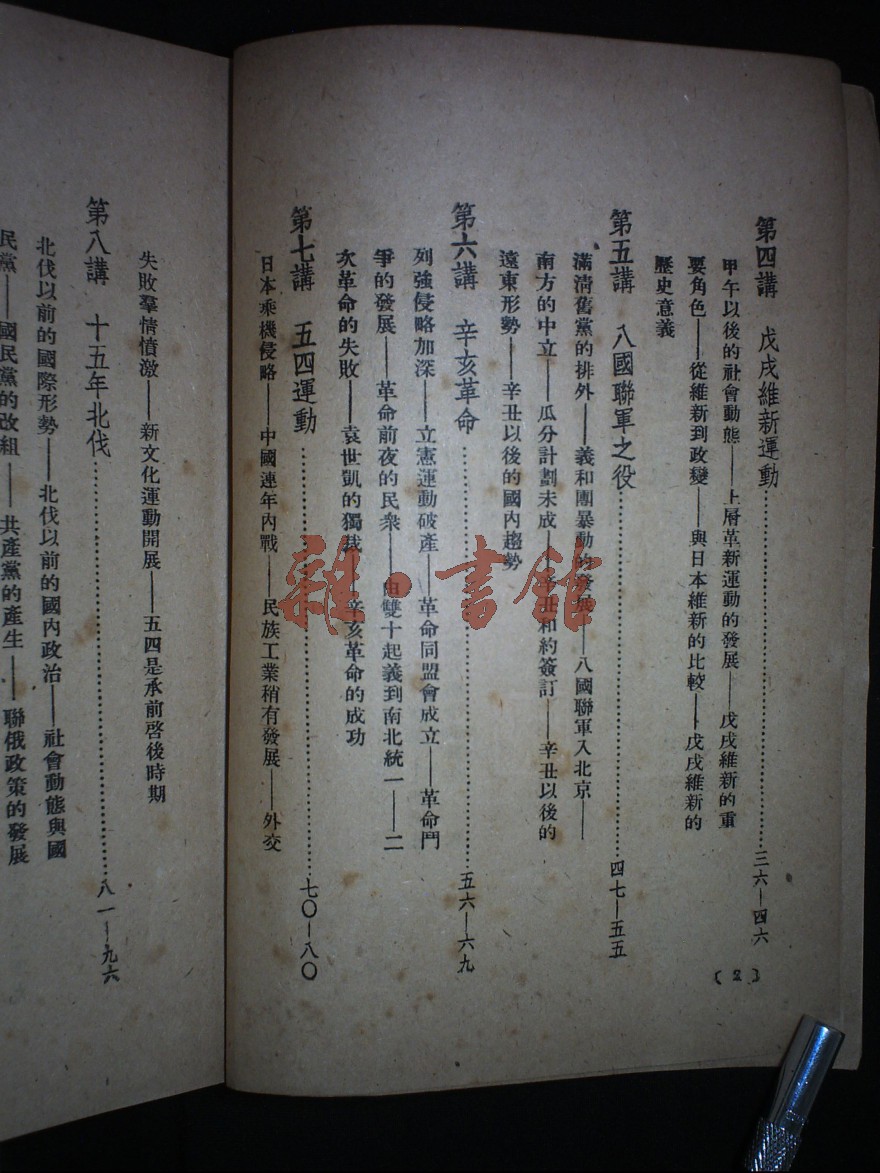 第四講　戊戌維新運動……三六—四六
甲午以後的社會動態——上層革新運動的發展——戊戌維新的重
要角色——從維新到政變——與日本維新的比較——戊戌維新的
歷史意義
第五講　八國聯軍之役……四七—五五
滿清舊黨的排外——義和團暴動的發展——八國聯軍入北京——
南方的中立——瓜分計劃未成——辛丑和約簽訂——辛丑以後的
遠東形勢——辛丑以後的國內趨勢
第六講　辛亥革命……五六—六九
列強侵略加深——立憲運動破產——革命同盟會成立——革命鬥
爭的發展——革命前夜的民衆——由雙十起義到南北統一——二
次革命的失敗——袁世凱的獨裁——辛亥革命的成功
第七講　五四運動……七〇—八〇
日本乘機侵略——中國連年內戰——民族工業稍有發展——外交
(2)
失敗羣情憤激——新文化運動開展——五四是承前啓後時期
第八講　十五年北伐……八一—九六
北伐以前的國際形勢——北伐以前的國內政治——社會動態與國
民黨——國民黨的改組——共產黨的產生——聯俄政策的發展
雜·書館